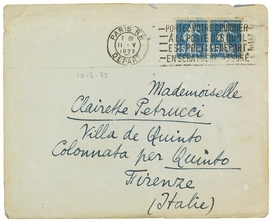 PARIS R.P.
11 - V
1922
DEPART
PORTEZ VOTRE COURRIER
A LA POSTE DES QU'IL
EST PRET LE DEPART
EN SERA
10-5-22
Mademoiselle
Clairette Petrucci
Villa de Quinto
Colonnata per Quinto
Firenze
(Italie)